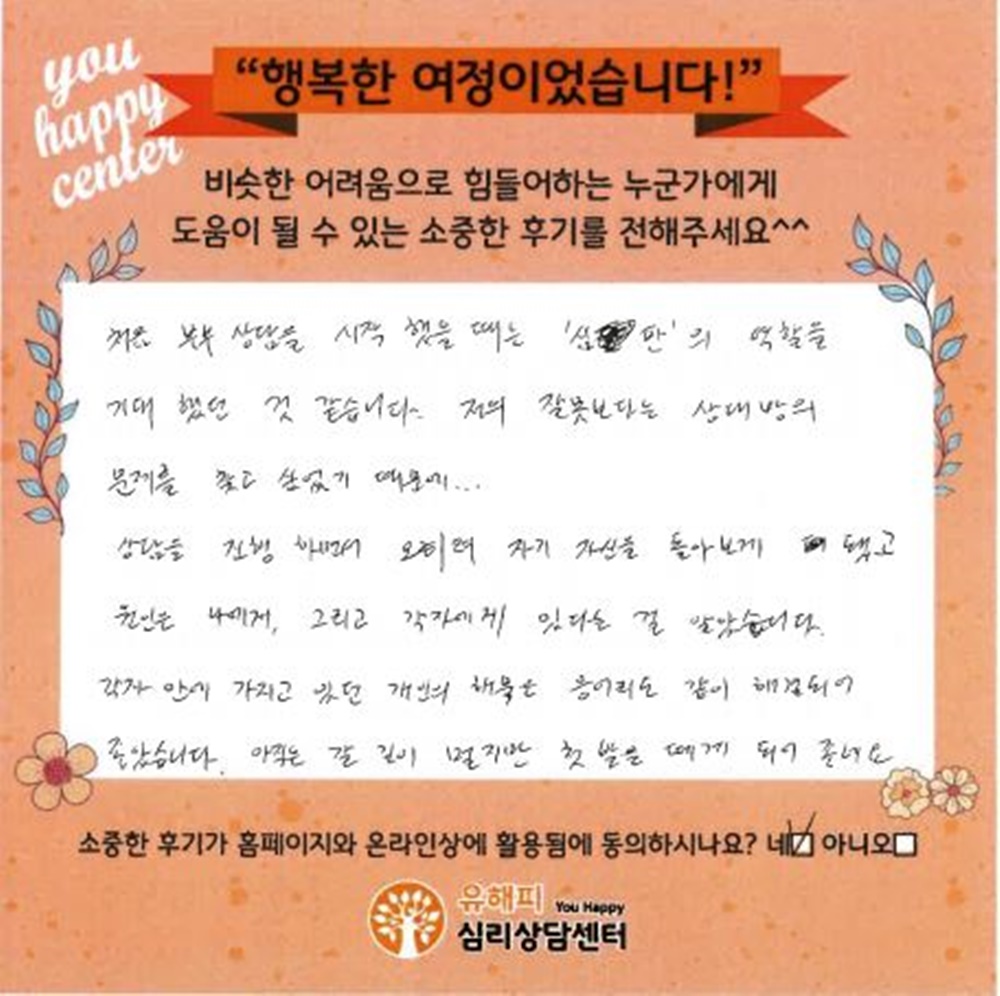 you
happy
center
“행복한 여정이었습니다!”
비슷한 어려움으로 힘들어하는 누군가에게
도움이 될 수 있는 소중한 후기를 전해주세요^^
처음 부부 상담을 시작 했을 때는 '심판'의 역할을
기대 했던 것 같습니다. 저의 잘못보다는 상대방의
문제를 찾고 싶었기 때문에...
상담을 진행 하면서 오히려 자기 자신을 돌아보게 됐고
원인은 나에게, 그리고 각자에게 있다는 걸 알았습니다.
각자 안에 가지고 있던 개인의 해묵은 응어리도 같이 해결되어
좋았습니다. 아직은 갈 길이 멀지만 첫 발을 떼게 되어 좋네요
소중한 후기가 홈페이지와 온라인상에 활용됨에 동의하시나요? 네 아니오
유해피 You Happy
심리상담센터